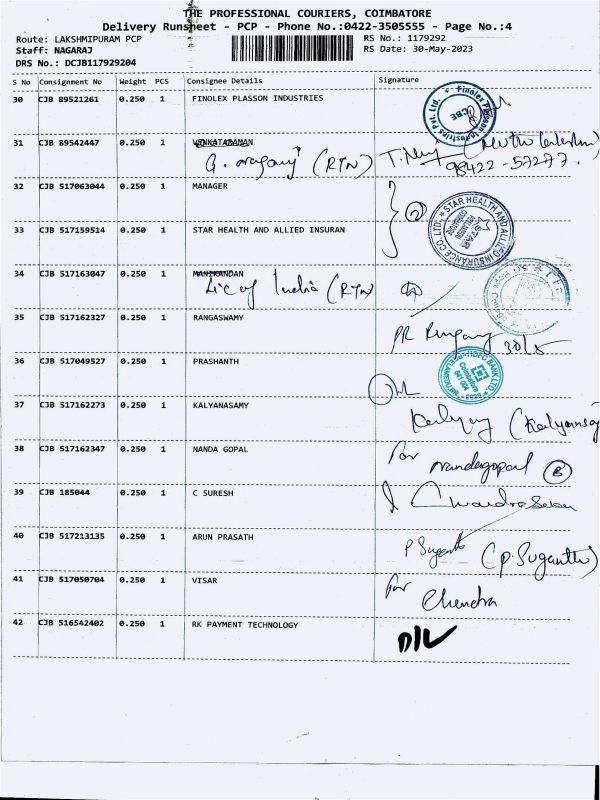 THE PROFESSIONAL COURIERS, COIMBATORE
Delivery Runsheet - PCP - Phone No.:0422-3505555 - Page No.:4
Route: LAKSHMIPURAM PCP RS No.: 1179292
Staff: NAGARAJ RS Date: 30-May-2023
DRS No.: DCJB117929204
S No Consignment No Weight PCS Consignee Details Signature
30 CJB 89521261 0.250 1 FINOLEX PLASSON INDUSTRIES
Finolex Plasson Industries Pvt. Ltd. CBE
31 CJB 89542447 0.250 1 VENKATARAMAN
G. (RTN) 98422-57277.
32 CJB 517063044 0.250 1 MANAGER
2
33 CJB 517159514 0.250 1 STAR HEALTH AND ALLIED INSURAN
STAR HEALTH AND ALLIED INSURANCE CO LTD
34 CJB 517163047 0.250 1 MANIKANDAN
Lic of India (RTN)
35 CJB 517162327 0.250 1 RANGASWAMY
PR 30/5
36 CJB 517049527 0.250 1 PRASHANTH
HDFC BANK LTD Coimbatore
37 CJB 517162273 0.250 1 KALYANASAMY
38 CJB 517162347 0.250 1 NANDA GOPAL
for nandagopal
39 CJB 185044 0.250 1 C SURESH
40 CJB 517213135 0.250 1 ARUN PRASATH
(P. Suganthi)
41 CJB 517050704 0.250 1 VISAR
for Chendra
42 CJB 516542402 0.250 1 RK PAYMENT TECHNOLOGY
D/L